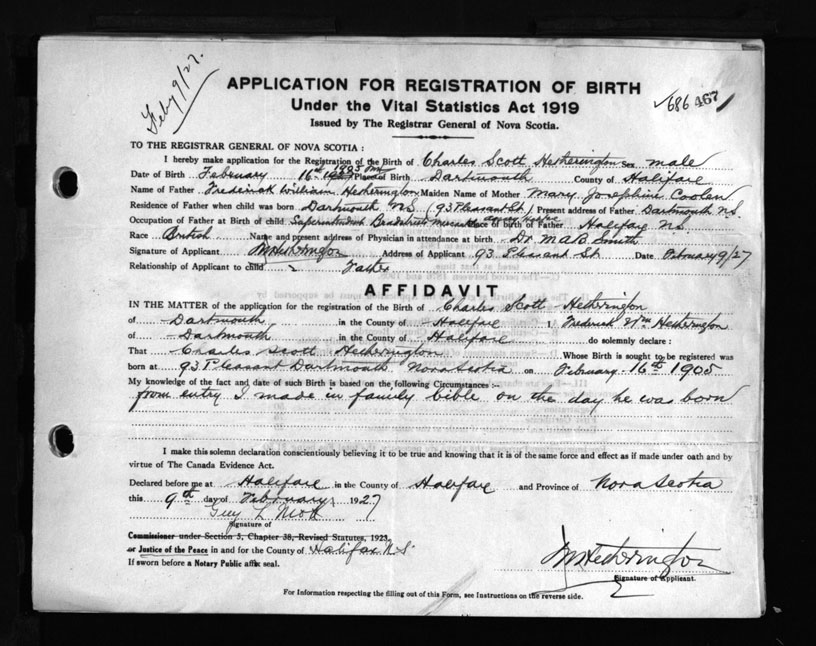 Feby 9/27.
APPLICATION FOR REGISTRATION OF BIRTH
686 467
Under the Vital Statistics Act 1919
Issued by The Registrar General of Nova Scotia.
TO THE REGISTRAR GENERAL OF NOVA SCOTIA :
I hereby make application for the Registration of the Birth of Charles Scott Hetherington Sex male
Date of Birth February 16th 1905 Place of Birth Dartmouth County of Halifax
Name of Father Frederick William Hetherington Maiden Name of Mother Mary Josephine Coolen
Residence of Father when child was born Dartmouth NS (93 Pleasant St) Present address of Father Dartmouth NS
Occupation of Father at Birth of child Superintendent Bradstreet Place of Birth of Father Halifax NS.
Race British Name and present address of Physician in attendance at birth Dr. M A B Smith
Signature of Applicant Hetherington Address of Applicant 93 Pleasant St Date February 9/27
Relationship of Applicant to child Father
AFFIDAVIT
IN THE MATTER of the application for the registration of the Birth of Charles Scott Hetherington
of Dartmouth in the County of Halifax I Frederick Wm Hetherington
of Dartmouth in the County of Halifax do solemnly declare :
That Charles Scott Hetherington Whose Birth is sought to be registered was
born at 93 Pleasant Dartmouth Nova Scotia on February 16th 1905
My knowledge of the fact and date of such Birth is based on the following Circumstances :-
from entry I made in family bible on the day he was born
I make this solemn declaration conscientiously believing it to be true and knowing that it is of the same force and effect as if made under oath and by
virtue of The Canada Evidence Act.
Declared before me at Halifax in the County of Halifax and Province of Nova Scotia
this 9th day of February 1927
Guy L Mott
Signature of
Commissioner under Section 5, Chapter 38, Revised Statutes, 1923.
or Justice of the Peace in and for the County of Halifax N.S.
If sworn before a Notary Public affix seal.
Hetherington
Signature of Applicant.
For Information respecting the filling out of this Form, see Instructions on the reverse side.